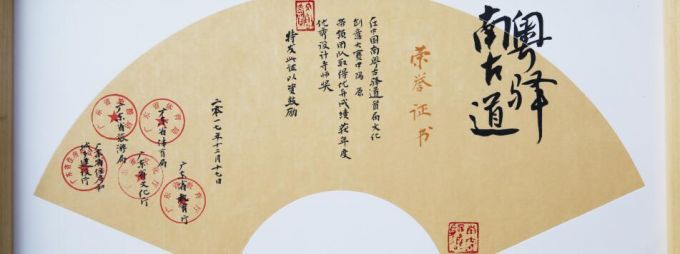 南粤古驿道
荣誉证书
在中国南粤古驿道首届文化
创意大赛中冯原
带领团队取得优异成绩获年度
优秀设计导师奖
特发此证以资鼓励
二零一七年十二月十七日
广东省教育厅
广东省体育局
广东省文化厅
广东省旅游局
广东省住房和
城乡建设厅